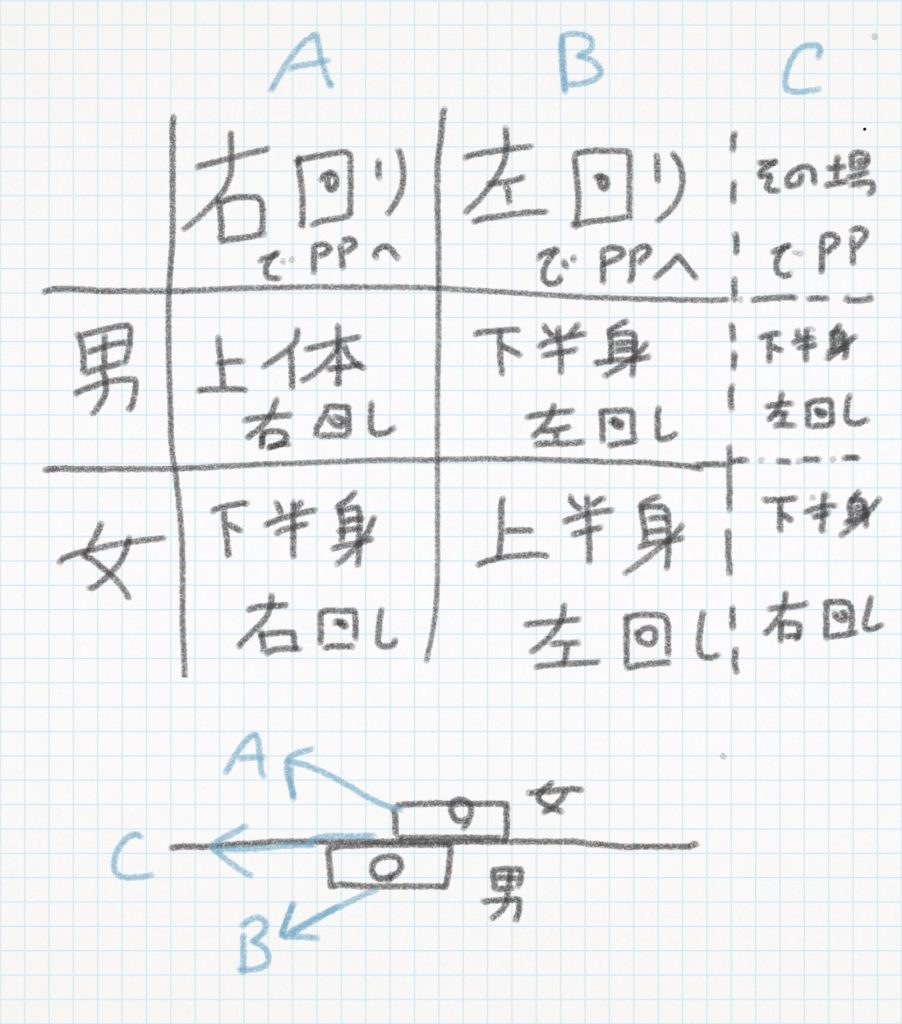 A B C
右回り 左回り その場
でPPへ でPPへ でPP
男 上体 下半身 下半身
右回し 左回し 左回し
女 下半身 上半身 下半身
右回し 左回し 右回し
A
女
C
男
B